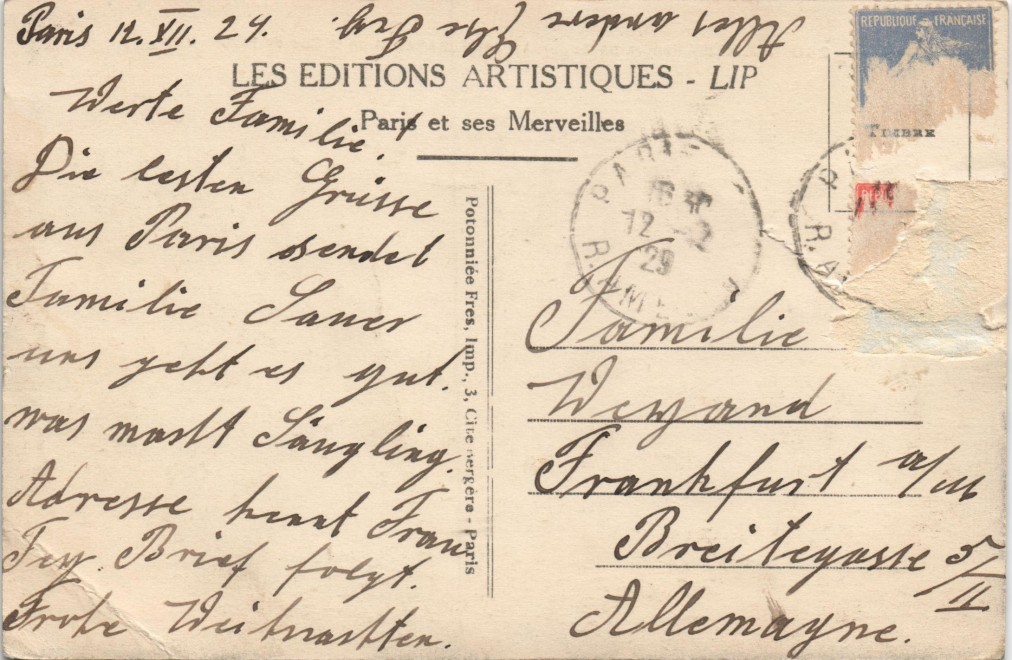 Paris 12. XII. 29.
Alles andere
LES EDITIONS ARTISTIQUES - LIP
Paris et ses Merveilles
Werte Familie!
Die besten Grüsse
aus Paris sendet
Familie Sauer
uns geht es gut.
was macht Säugling.
Adresse kennt Frau
Fey. Brief folgt.
Frohe Weihnachten.
Potonniée Fres, Imp., 3, Cité Bergère - Paris
REPUBLIQUE FRANÇAISE
TIMBRE
PARIS
12 - 12
29
Familie
Weyand
Frankfurt a/M
Breitegasse 5/II
Allemagne.